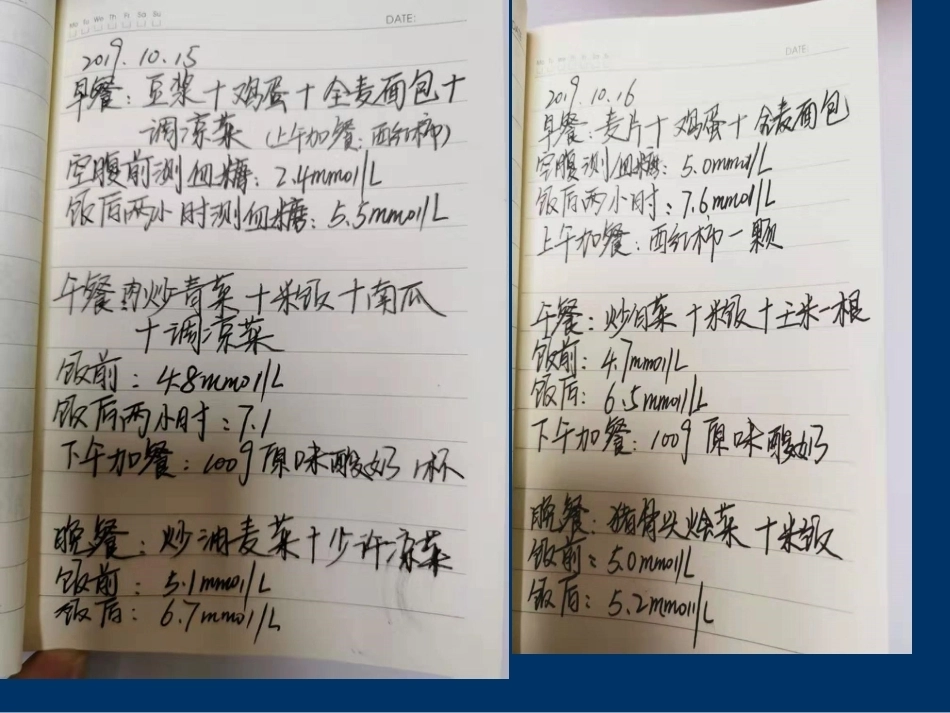 Mo Tu We Th Fr Sa Su
DATE:
2019.10.15
早餐：豆浆+鸡蛋+全麦面包+
调凉菜（上午加餐：西红柿）
空腹前测血糖：2.4mmol/L
饭后两小时测血糖：5.5mmol/L
午餐肉炒青菜+米饭+南瓜
+调凉菜
饭前：4.8mmol/L
饭后两小时：7.1
下午加餐：100g原味酸奶1杯
晚餐：炒油麦菜+少许凉菜
饭前：5.1mmol/L
饭后：6.7mmol/L
DATE:
2019.10.16
早餐：麦片+鸡蛋+全麦面包
空腹测血糖：5.0mmol/L
饭后两小时：7.6mmol/L
上午加餐：西红柿一颗
午餐：炒油菜+米饭+玉米一根
饭前：4.7mmol/L
饭后：6.5mmol/L
下午加餐：100g原味酸奶
晚餐：猪骨头烩菜+米饭
饭前：5.0mmol/L
饭后：5.2mmol/L